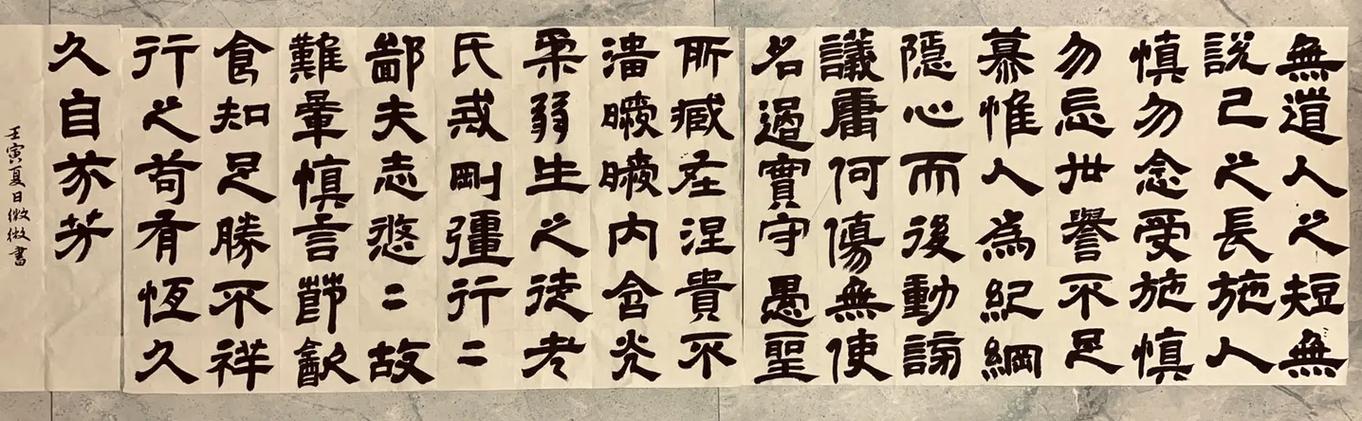 無道人之短無
說己之長施人
慎勿念受施慎
勿忘世譽不足
慕惟人為紀綱
隱心而後動謗
議庸何傷無使
名過實守愚聖
所臧在涅貴不
淄曖曖內含光
柔弱生之徒老
氏戒剛彊行二
鄙夫志悠二故
難量慎言節飲
食知足勝不祥
行之苟有恆久
久自芬芳
壬寅夏日微微書